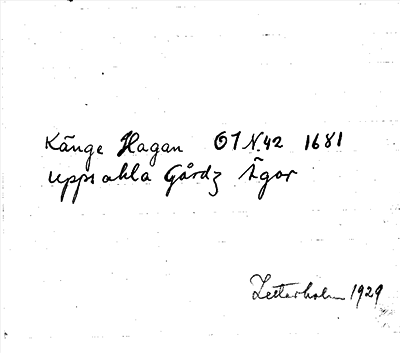 Känge Hagan O7 N.42 1681
Uppsahla Gårdz Ägor
Zetterholm 1929